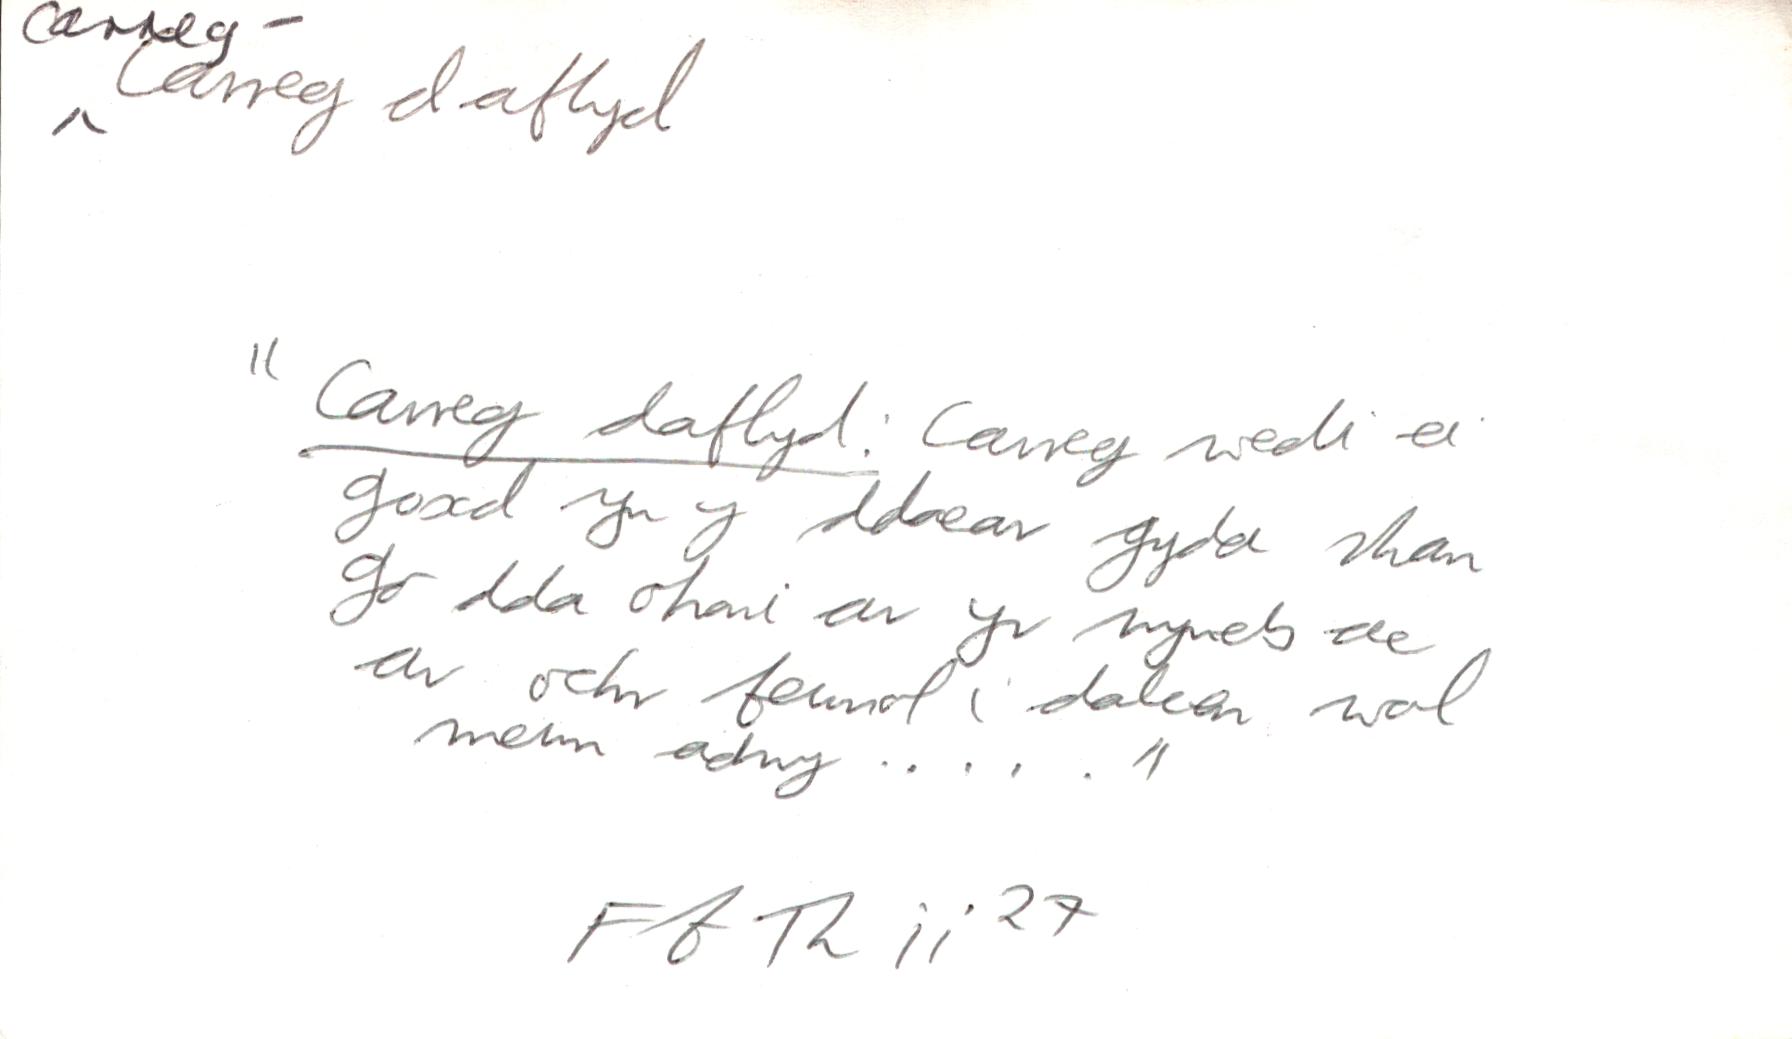 carreg -
^ Carreg daflyd
" Carreg daflyd: Carreg wedi ei
gosod yn y ddaear gyda rhan
go dda ohoni ar yr wyneb ac
ar ochr fewnol i dalcen wal
mewn adwy ..... "
Ff Th ii 27